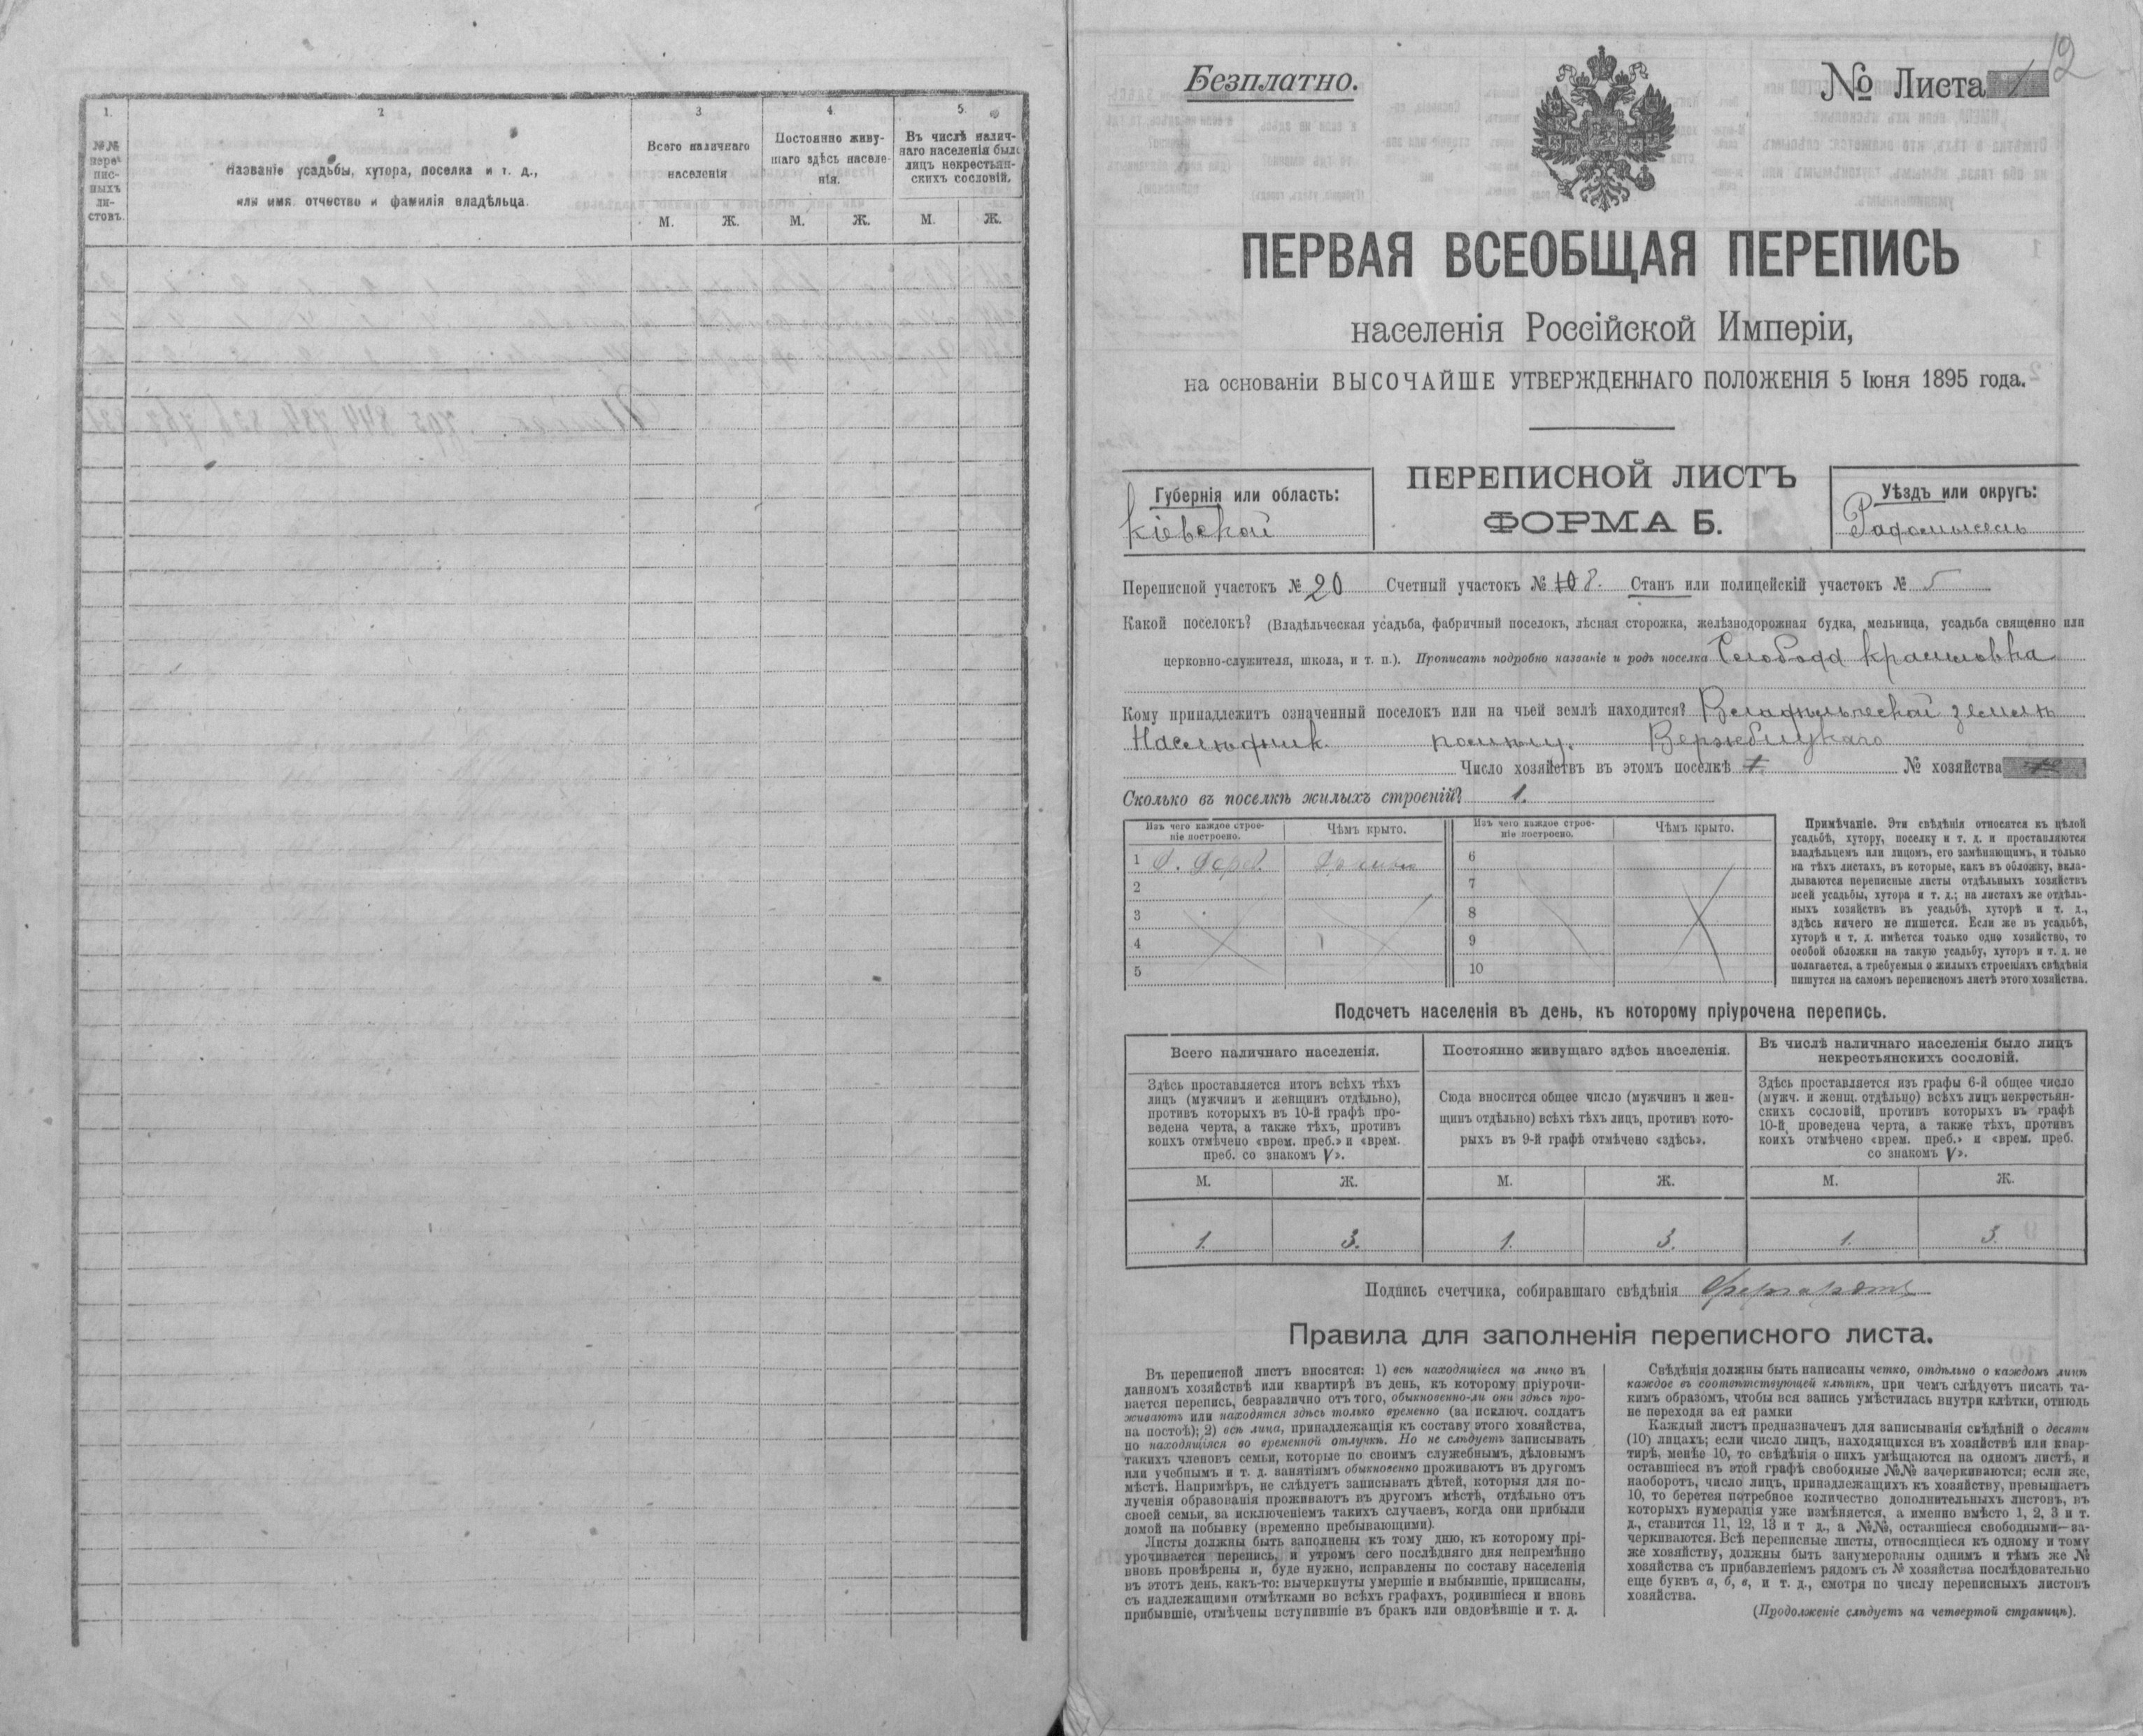 1.
2
3
4
5.
№№ переписныхъ листовъ.
Названіе усадьбы, хутора, поселка и т. д.,
или имя, отчество и фамилія владѣльца.
Всего наличнаго
населенія
Постоянно живу-
щаго здѣсь населе-
нія.
Въ числѣ налич-
наго населенія было
лицъ некрестьян-
скихъ сословій.
М.
Ж.
М.
Ж.
М.
Ж.
12
Безплатно.
№ Листа 1
ПЕРВАЯ ВСЕОБЩАЯ ПЕРЕПИСЬ
населенія Россійской Имперіи,
на основаніи ВЫСОЧАЙШЕ УТВЕРЖДЕННАГО ПОЛОЖЕНІЯ 5 Іюня 1895 года.
Губернія или область:
Кіевской
ПЕРЕПИСНОЙ ЛИСТЪ
ФОРМА Б.
Уѣздъ или округъ:
Радомысль
Переписной участокъ № 20 Счетный участокъ № 10 8. Станъ или полицейскій участокъ № 5
Какой поселокъ? (Владѣльческая усадьба, фабричный поселокъ, лѣсная сторожка, желѣзнодорожная будка, мельница, усадьба священно или
церковно-служителя, школа, и т. п.). Прописать подробно названіе и родъ поселка Слобода
Кому принадлежитъ означенный поселокъ или на чьей землѣ находится? Владѣльческой землѣ
Наслѣдник. помѣщ. Вержбицкаго
Число хозяйствъ въ этомъ поселкѣ 1. № хозяйства
Сколько въ поселкѣ жилыхъ строеній? 1.
Изъ чего каждое строе-
ніе построено.
Чѣмъ крыто.
Изъ чего каждое строе-
ніе построено.
Чѣмъ крыто.
1 Дерев.
2
3
4
5
6
7
8
9
10
Примѣчаніе. Эти свѣдѣнія относятся къ цѣлой
усадьбѣ, хутору, поселку и т. д. и проставляются
владѣльцемъ или лицомъ, его замѣняющимъ, и только
на тѣхъ листахъ, въ которые, какъ въ обложку, вкла-
дываются переписные листы отдѣльныхъ хозяйствъ
всей усадьбы, хутора и т. д.; на листахъ же отдѣль-
ныхъ хозяйствъ въ усадьбѣ, хуторѣ и т. д.,
здѣсь ничего не пишется. Если же въ усадьбѣ,
хуторѣ и т. д. имѣется только одно хозяйство, то
особой обложки на такую усадьбу, хуторъ и т. д. не
полагается, а требуемыя о жилыхъ строеніяхъ свѣдѣнія
пишутся на самомъ переписномъ листѣ этого хозяйства.
Подсчетъ населенія въ день, къ которому пріурочена перепись.
Всего наличнаго населенія.
Постоянно живущаго здѣсь населенія.
Въ числѣ наличнаго населенія было лицъ
некрестьянскихъ сословій.
Здѣсь проставляется итогъ всѣхъ тѣхъ
лицъ (мужчинъ и женщинъ отдѣльно),
противъ которыхъ въ 10-й графѣ про-
ведена черта, а также тѣхъ, противъ
коихъ отмѣчено «врем. преб.» и «врем.
преб. со знакомъ V».
Сюда вносится общее число (мужчинъ и жен-
щинъ отдѣльно) всѣхъ тѣхъ лицъ, противъ кото-
рыхъ въ 9-й графѣ отмѣчено «здѣсь».
Здѣсь проставляется изъ графы 6-й общее число
(мужч. и женщ. отдѣльно) всѣхъ лицъ некрестьян-
скихъ сословій, противъ которыхъ въ графѣ
10-й, проведена черта, а также тѣхъ, противъ
коихъ отмѣчено «врем. преб.» и «врем. преб.
со знакомъ V».
М.
Ж.
М.
Ж.
М.
Ж.
1.
3.
1.
3.
1.
3.
Подпись счетчика, собиравшаго свѣдѣнія
Правила для заполненія переписного листа.
Въ переписной листъ вносятся: 1) всѣ находящіеся на лицо въ
данномъ хозяйствѣ или квартирѣ въ день, къ которому пріурочи-
вается перепись, безразлично отъ того, обыкновенно-ли они здѣсь про-
живаютъ или находятся здѣсь только временно (за исключ. солдатъ
на постоѣ); 2) всѣ лица, принадлежащія къ составу этого хозяйства,
но находящіяся во временной отлучкѣ. Но не слѣдуетъ записывать
такихъ членовъ семьи, которые по своимъ служебнымъ, дѣловымъ
или учебнымъ и т. д. занятіямъ обыкновенно проживаютъ въ другомъ
мѣстѣ. Напримѣръ, не слѣдуетъ записывать дѣтей, которыя для по-
лученія образованія проживаютъ въ другомъ мѣстѣ, отдѣльно отъ
своей семьи, за исключеніемъ такихъ случаевъ, когда они прибыли
домой на побывку (временно пребывающими).
Листы должны быть заполнены къ тому дню, къ которому прі-
урочивается перепись, и утромъ сего послѣдняго дня непремѣнно
вновь провѣрены и, буде нужно, исправлены по составу населенія
въ этотъ день, какъ-то: вычеркнуты умершіе и выбывшіе, приписаны,
съ надлежащими отмѣтками во всѣхъ графахъ, родившіеся и вновь
прибывшіе, отмѣчены вступившіе въ бракъ или овдовѣвшіе и т. д.
Свѣдѣнія должны быть написаны четко, отдѣльно о каждомъ лицѣ
каждое въ соотвѣтствующей клѣткѣ, при чемъ слѣдуетъ писать та-
кимъ образомъ, чтобы вся запись умѣстилась внутри клѣтки, отнюдь
не переходя за ея рамки
Каждый листъ предназначенъ для записыванія свѣдѣній о десяти
(10) лицахъ; если число лицъ, находящихся въ хозяйствѣ или квар-
тирѣ, менѣе 10, то свѣдѣнія о нихъ умѣщаются на одномъ листѣ, и
оставшіеся въ этой графѣ свободные №№ зачеркиваются; если же,
наоборотъ, число лицъ, принадлежащихъ къ хозяйству, превышаетъ
10, то берется потребное количество дополнительныхъ листовъ, въ
которыхъ нумерація уже измѣняется, а именно вмѣсто 1, 2, 3 и т.
д., ставится 11, 12, 13 и т д., а №№, оставшіеся свободными—за-
черкиваются. Всѣ переписные листы, относящіеся къ одному и тому
же хозяйству, должны быть занумерованы однимъ и тѣмъ же №
хозяйства съ прибавленіемъ рядомъ съ № хозяйства послѣдовательно
еще буквъ а, б, в, и т. д., смотря по числу переписныхъ листовъ
хозяйства.
(Продолженіе слѣдуетъ на четвертой страницѣ).